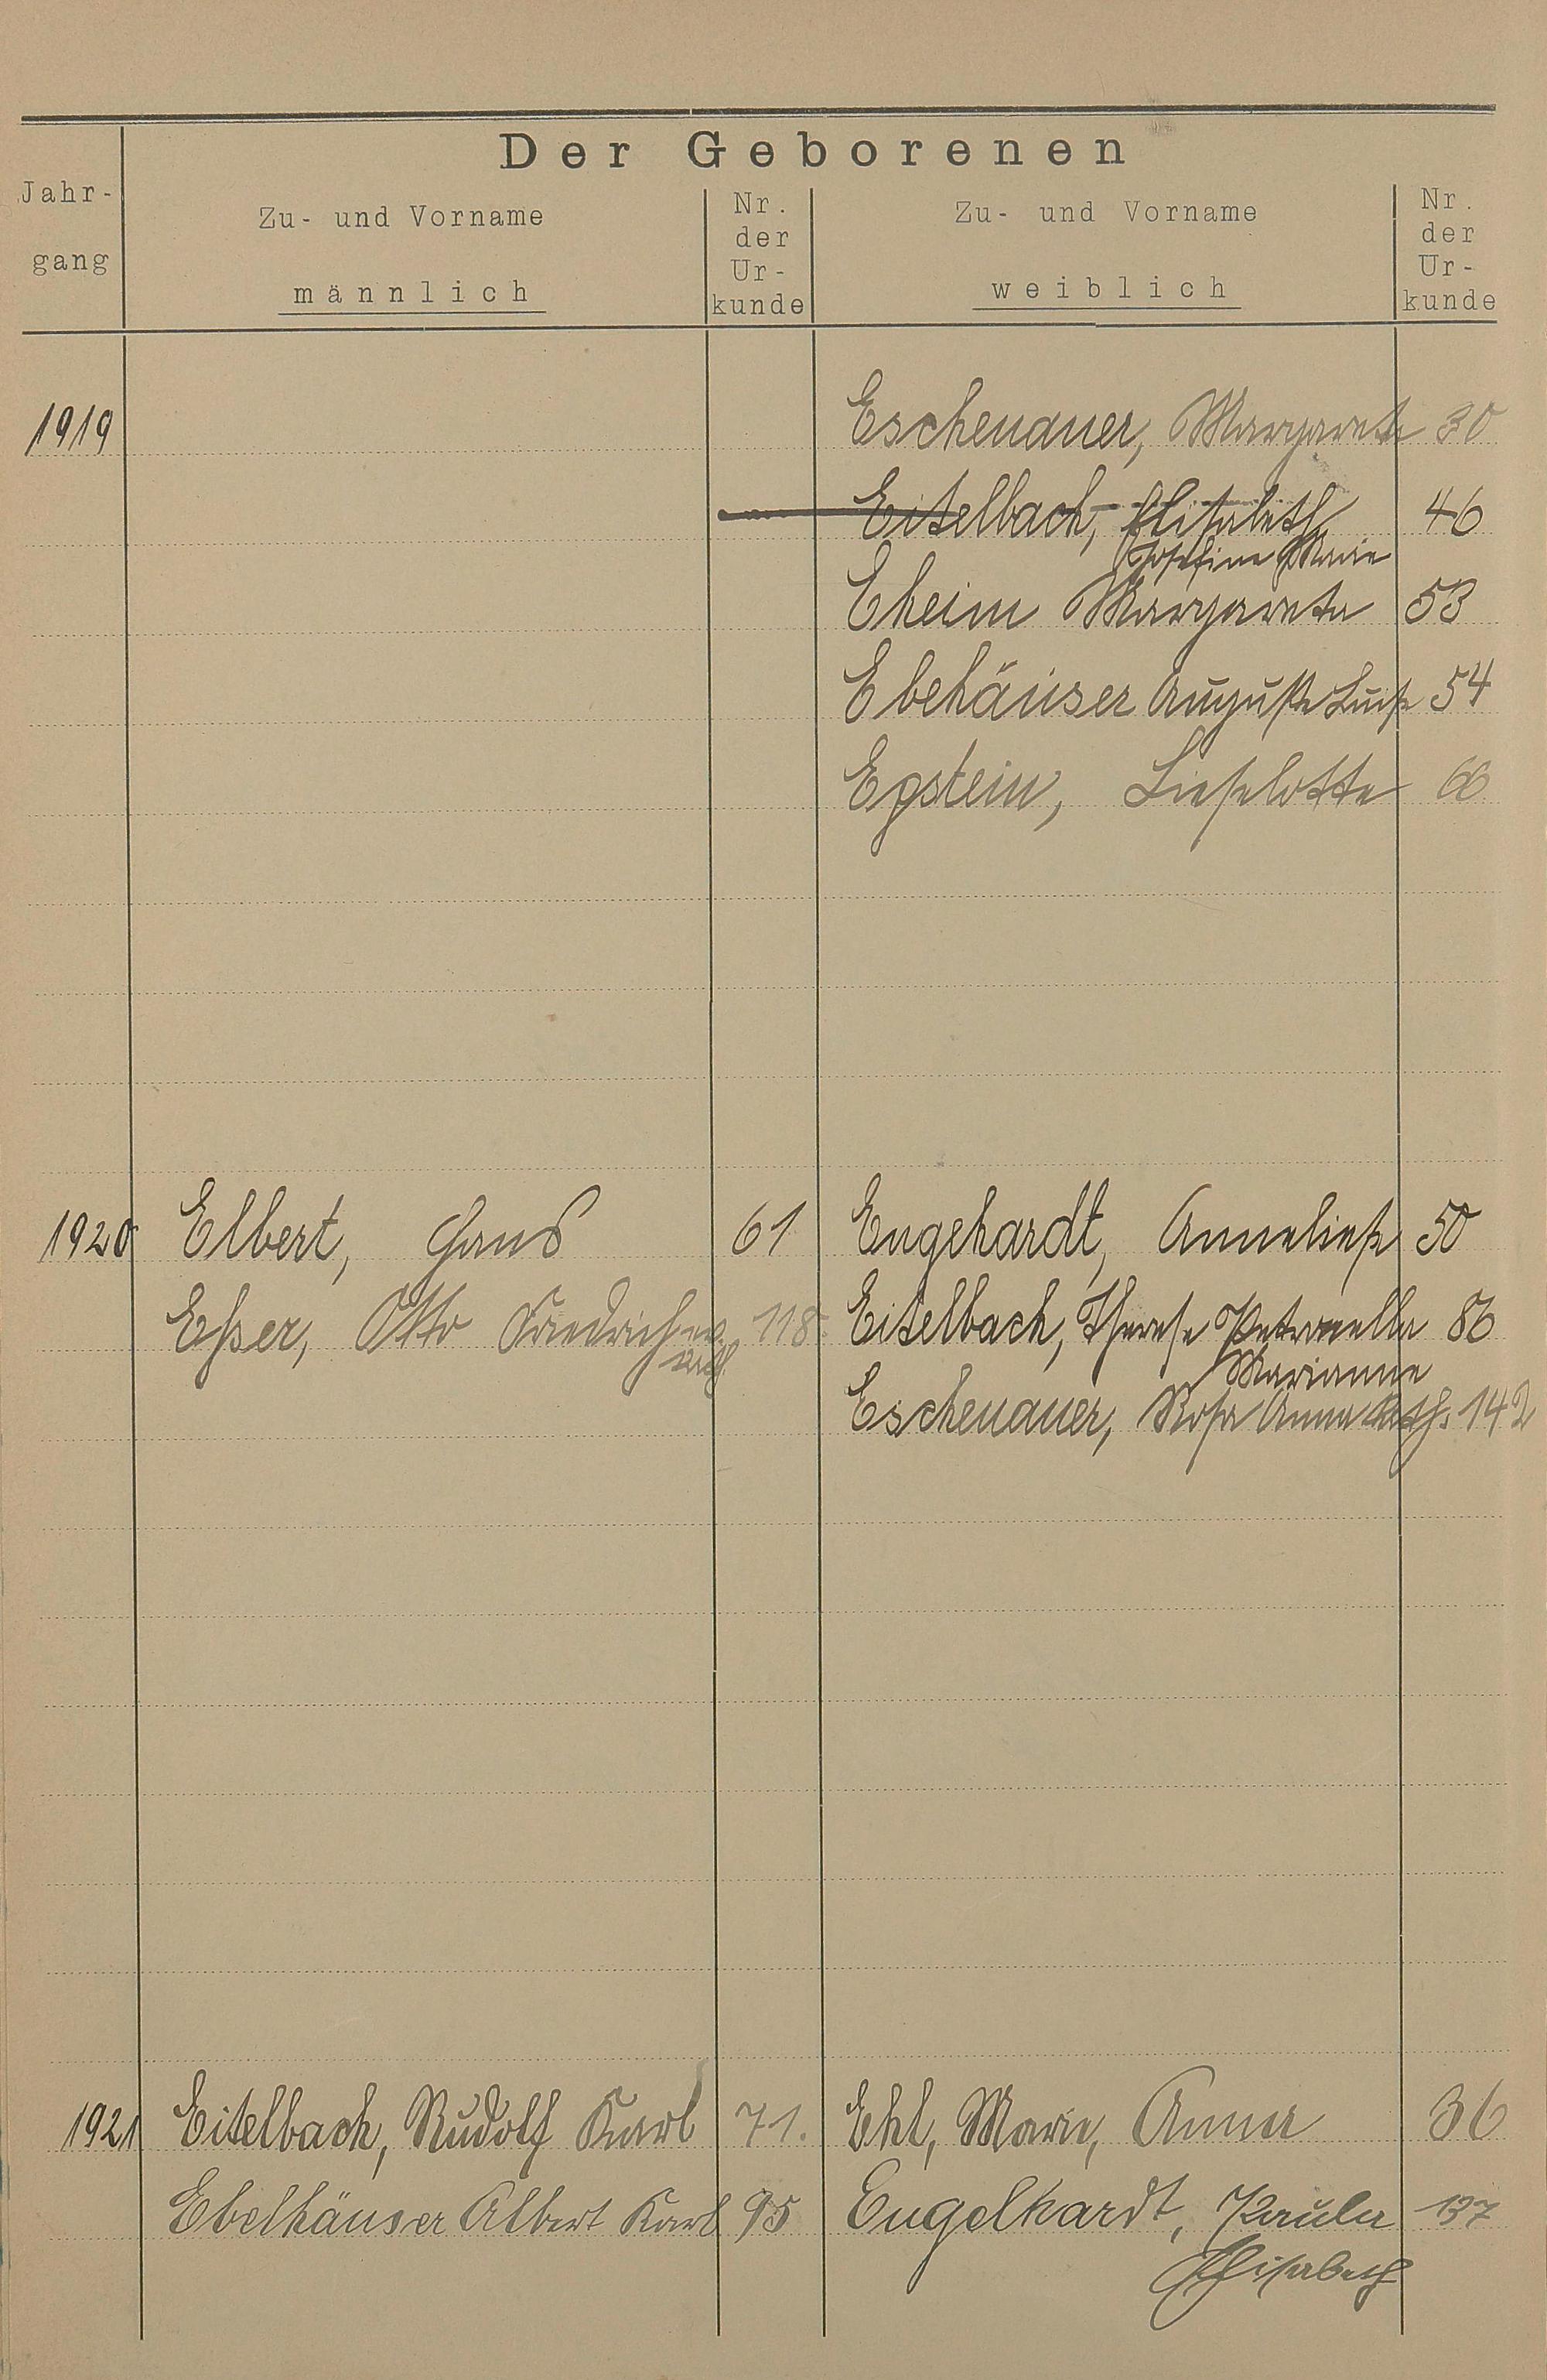 Der Geborenen
Jahr-
gang
Zu- und Vorname
männlich
Nr.
der
Ur-
kunde
Zu- und Vorname
weiblich
Nr.
der
Ur-
kunde
1919 Eschenauer, Margarete 30
Eitelbach, Elisabeth 46
Josefine Marie
Eheim Margareta 53
Ebehäuser Auguste Luise 54
Epstein, Lieselotte 66
1920 Elbert, Hans 61 Engehardt, Anneliese 50
Esser, Otto Friedrich 118. Eitelbach, Therese Petronella 86
Marianne
Eschenauer, Rosa Anna Kath. 142
1921 Eitelbach, Rudolf Karl 71. Ehl, Marie, Anna 36
Ebelhäuser Albert Karl 95 Engelhardt, Paula 137
Elisabeth